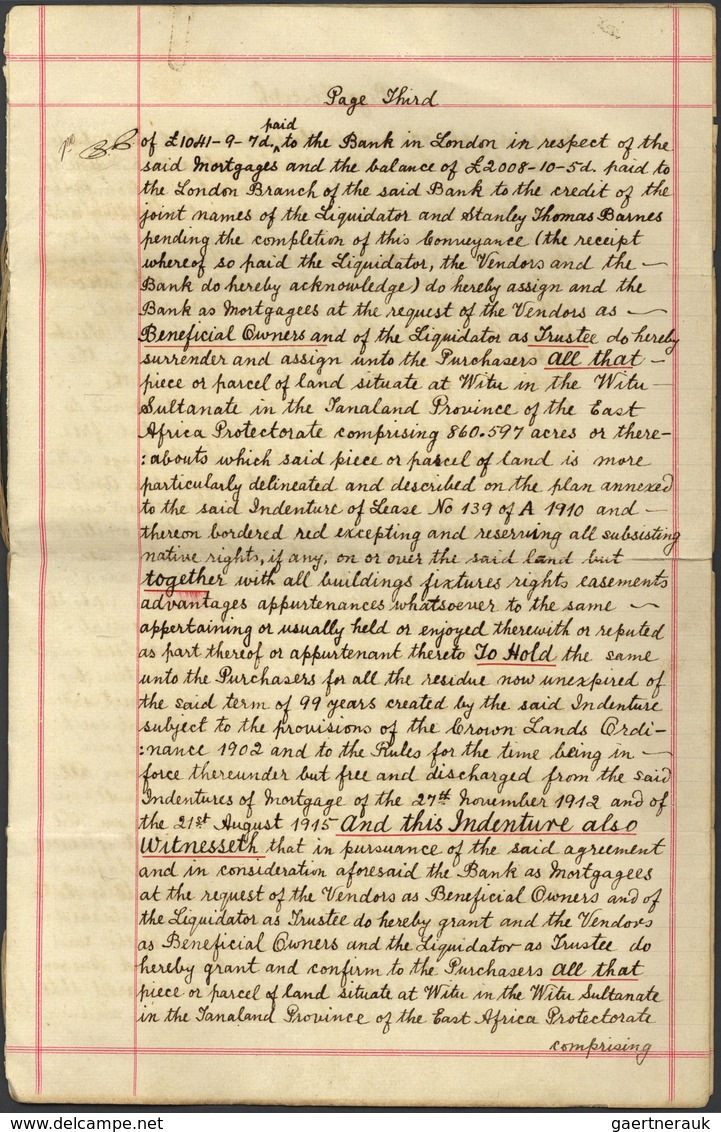 Page Third
of £1041-9-7d. paid to the Bank in London in respect of the
said Mortgages and the balance of £2008-10-5d. paid to
the London Branch of the said Bank to the credit of the
joint names of the Liquidator and Stanley Thomas Barnes
pending the completion of this Conveyance (the receipt
whereof so paid the Liquidator, the Vendors and the —
Bank do hereby acknowledge) do hereby assign and the
Bank as Mortgagees at the request of the Vendors as —
Beneficial Owners and of the Liquidator as Trustee do hereby
surrender and assign unto the Purchasers All that —
piece or parcel of land situate at Witu in the Witu —
Sultanate in the Tanaland Province of the East
Africa Protectorate comprising 860.597 acres or there-
:abouts which said piece or parcel of land is more
particularly delineated and described on the plan annexed
to the said Indenture of Lease No 139 of A 1910 and —
thereon bordered red excepting and reserving all subsisting
native rights, if any, on or over the said land but
together with all buildings fixtures rights easements
advantages appurtenances whatsoever to the same —
appertaining or usually held or enjoyed therewith or reputed
as part thereof or appurtenant thereto To Hold the same
unto the Purchasers for all the residue now unexpired of
the said term of 99 years created by the said Indenture
subject to the provisions of the Crown Lands Ordi-
:nance 1902 and to the Rules for the time being in —
force thereunder but free and discharged from the said
Indentures of Mortgage of the 27th November 1912 and of
the 21st August 1915 And this Indenture also
Witnesseth that in pursuance of the said agreement
and in consideration aforesaid the Bank as Mortgagees
at the request of the Vendors as Beneficial Owners and of
the Liquidator as Trustee do hereby grant and the Vendors
as Beneficial Owners and the Liquidator as Trustee do
hereby grant and confirm to the Purchasers All that
piece or parcel of land situate at Witu in the Witu Sultanate
in the Tanaland Province of the East Africa Protectorate
comprising
gaertnerauk